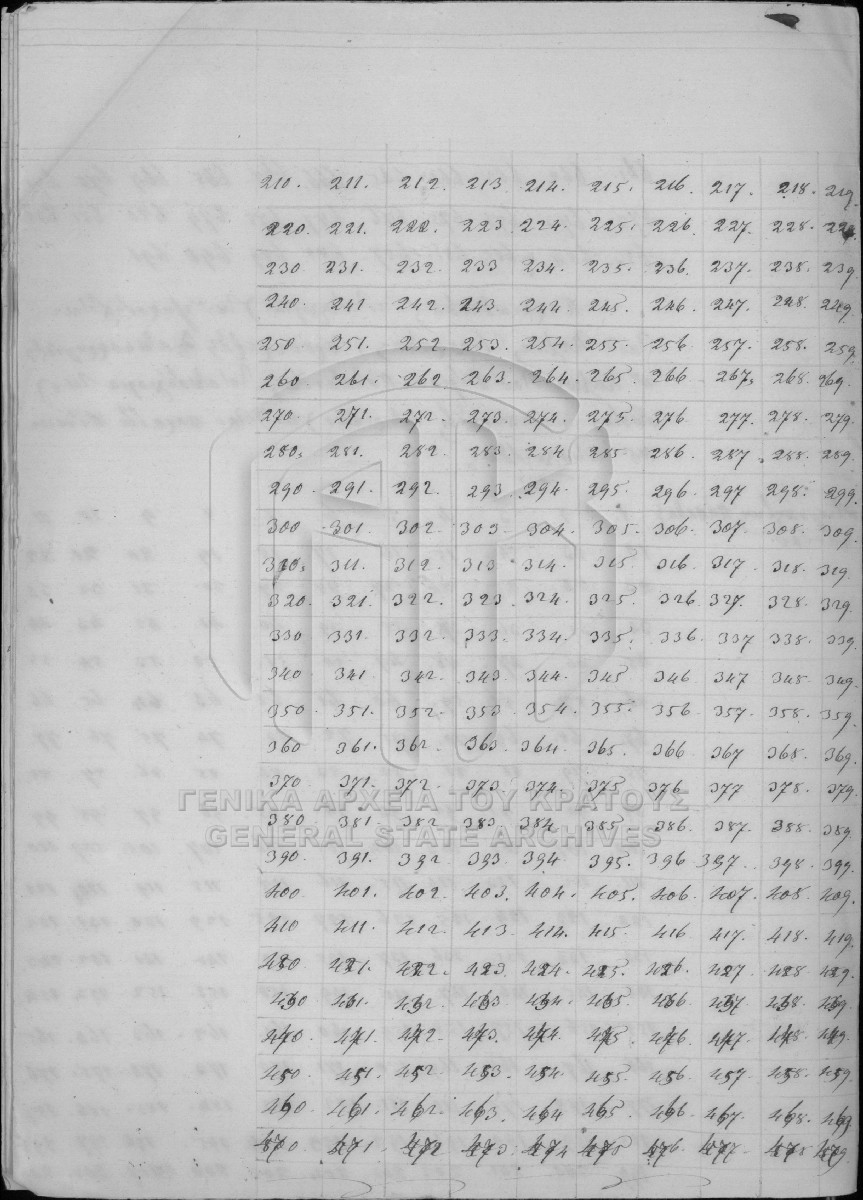 210. 211. 212. 213. 214. 215. 216. 217. 218. 219.
220. 221. 222. 223 224. 225. 226. 227. 228. 229
230 231. 232. 233 234. 235. 236. 237. 238. 239
240. 241 242. 243. 244. 245. 246. 247. 248. 249.
250 251. 252 253. 254. 255. 256 257. 258. 259.
260. 261. 262 263. 264. 265. 266 267. 268. 269.
270. 271. 272. 273. 274. 275. 276. 277. 278. 279.
280. 281. 282. 283. 284 285. 286. 287 288. 289.
290. 291. 292. 293. 294. 295. 296. 297 298. 299.
300 301. 302. 303. 304. 305. 306. 307. 308. 309.
310. 311. 312. 313 314. 315 316 317. 318. 319.
320. 321. 322. 323. 324. 325. 326. 327. 328. 329.
330 331. 332. 333. 334. 335. 336. 337 338. 339.
340 341 342. 343. 344. 345 346 347 348. 349.
350. 351. 352. 353 354. 355. 356. 357. 358. 359.
360 361. 362. 363. 364. 365. 366 367 368. 369.
370 371. 372. 373. 374. 375. 376 377 378. 379.
ΓΕΝΙΚΑ ΑΡΧΕΙΑ ΤΟΥ ΚΡΑΤΟΥΣ
380 381. 382 383. 384 385. 386. 387. 388. 389.
GENERAL STATE ARCHIVES
390. 391. 392. 393 394 395. 396 397. 398. 399.
400 401. 402. 403. 404. 405. 406. 407. 408. 409.
410 411. 412. 413 414. 415. 416 417. 418. 419.
420 421. 422. 423. 424. 425. 426. 427 428 429.
430 431. 432. 433 434. 435 436 437 438. 439.
440. 441. 442. 443. 444. 445 446 447. 448. 449.
450 451. 452. 453. 454. 455. 456. 457. 458. 459.
460. 461. 462. 463. 464 465. 466 467. 468. 469.
470 471. 472 473 474 475 476 477. 478 479.